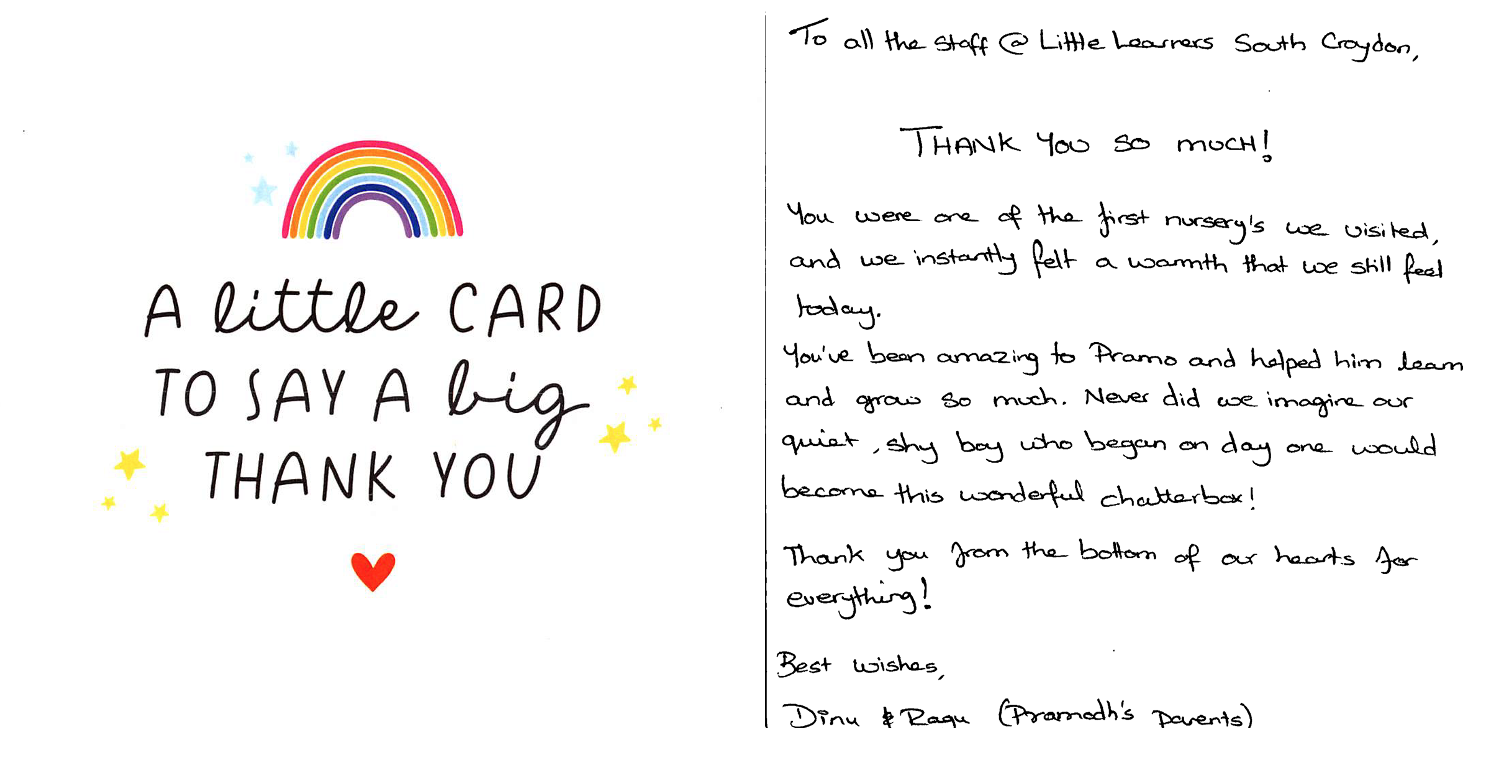 A little CARD
TO SAY A big
THANK YOU
To all the staff @ Little Learners South Croydon,
THANK YOU SO MUCH!
You were one of the first nursery's we visited,
and we instantly felt a warmth that we still feel
today.
You've been amazing to Pramo and helped him learn
and grow so much. Never did we imagine our
quiet, shy boy who began on day one would
become this wonderful chatterbox!
Thank you from the bottom of our hearts for
everything!
Best wishes,
Dinu & Ragu (Pramodh's parents)